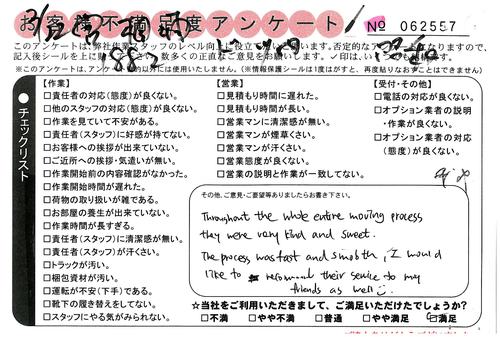 お客様不満足度アンケート
No 062557
このアンケートは、弊社作業スタッフのレベル向上に役立て
記入後シールを上に
数多くの正直なご意見をお願いします。✓印は、いくつでも結構です。
※このアンケートは、アンケート
以外には使用いたしません。(※情報保護シールは1度はがすと、再度貼りなおすことはできません)
チェックリスト
【作業】
□責任者の対応(態度)が良くない。
□他のスタッフの対応(態度)が良くない。
□作業を見ていて不安がある。
□責任者(スタッフ)に好感が持てない。
□お客様への挨拶が出来ていない。
□ご近所への挨拶・気遣いが無い。
□作業開始前の内容確認がなかった。
□作業開始時間が遅れた。
□荷物の取り扱いが雑である。
□お部屋の養生が出来ていない。
□作業時間が長すぎる。
□責任者(スタッフ)に清潔感が無い。
□責任者(スタッフ)が汗くさい。
□トラックが汚い。
□梱包資材が汚い。
□運転が不安(下手)である。
□靴下の履き替えをしてない。
□スタッフにやる気がみられない。
【営業】
□見積もり時間に遅れた。
□見積もり時間が長い。
□営業マンに清潔感が無い。
□営業マンが煙草くさい。
□営業マンが汗くさい。
□営業態度が良くない。
□営業の説明と作業が一致してない。
【受付・その他】
□電話の対応が良くない。
□オプション業者の説明
・作業が良くない。
□オプション業者の対応
(態度)が良くない。
その他、ご意見・ご要望等ありましたらお書き下さい。
Throughout the whole entire moving process
they were very kind and sweet.
The process was fast and smooth, I would
like to recommend their service to my
friends as well
☆当社をご利用いただきまして、ご満足いただけたでしょうか?
□不満 □やや不満 □普通 □やや満足 ☑満足